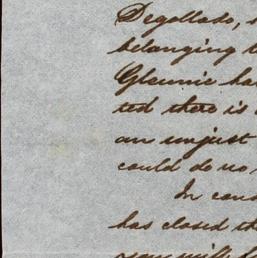 Degollado,
belonging
Glennie ha
ted there is
an unjust
could do no
In con
has closed th